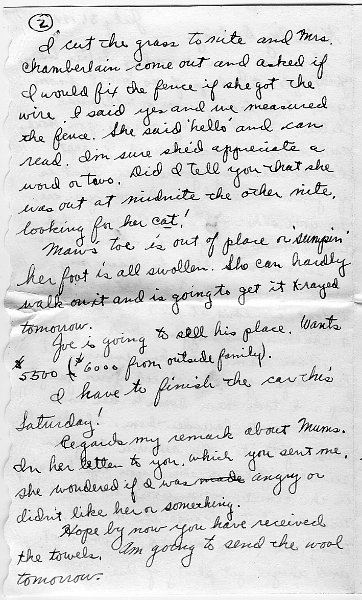 2
I cut the grass to nite and Mrs.
Chamberlain come out and asked if
I would fix the fence if she got the
wire. I said yes and we measured
the fence. She said 'hello' and can
read. I'm sure she'd appreciate a
word or two. Did I tell you that she
was out at midnite the other nite,
looking for her cat!
Maw's toe is out of place or 'sumpin'
her foot is all swollen. She can hardly
walk on it and is going to get it Xrayed
tomorrow.
Joe is going to sell his place. Wants
$5500 ($6000 from outside family).
I have to finish the car this
Saturday!
Regards my remark about Mums.
In her letter to you, which you sent me,
she wondered if I was made angry or
didn't like her or something.
Hope by now you have received
the towels. I'm going to send the wool
tomorrow.